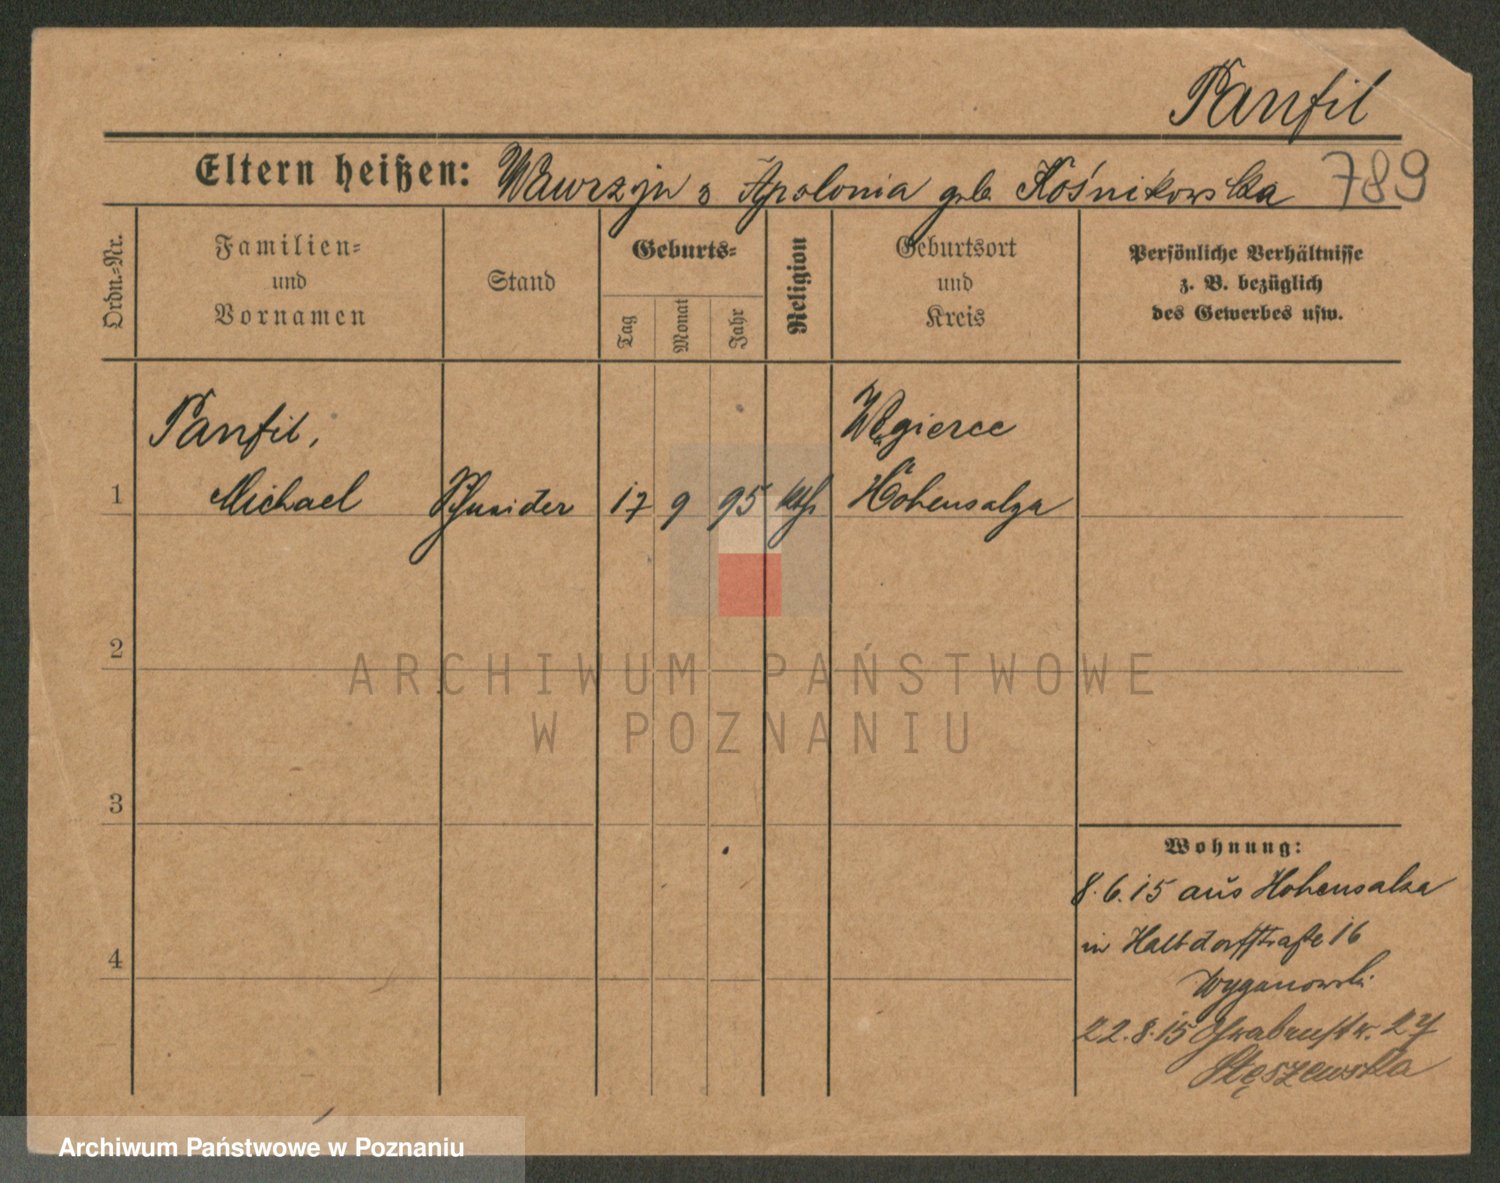 Panfil
Eltern heißen: Wawrzyn u Apolonia geb. Kośnikowska 789
Ordn.-Nr.
Familien-
und
Vornamen
Stand
Geburts-
Tag
Monat
Jahr
Religion
Geburtsort
und
Kreis
Persönliche Verhältnisse
z. B. bezüglich
des Gewerbes usw.
Panfil, Węgierce
1 Michael Schneider 17 9 95 kth Hohensalza
2
3
4
Wohnung:
8.6.15 aus Hohensalza
in Halbdorfstraße 16
Wyganowski
22.8.15 Schwabenstr. 27
Stęszewska
ARCHIWUM PAŃSTWOWE
W POZNANIU
Archiwum Państwowe w Poznaniu